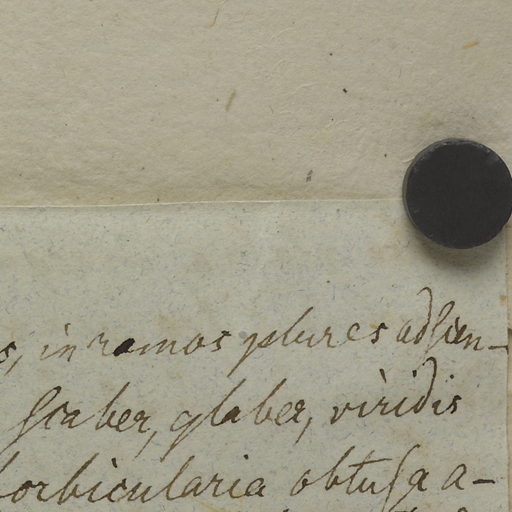 in ramos plures adscen-
scaber, glaber, viridis
orbicularia obtusa a-